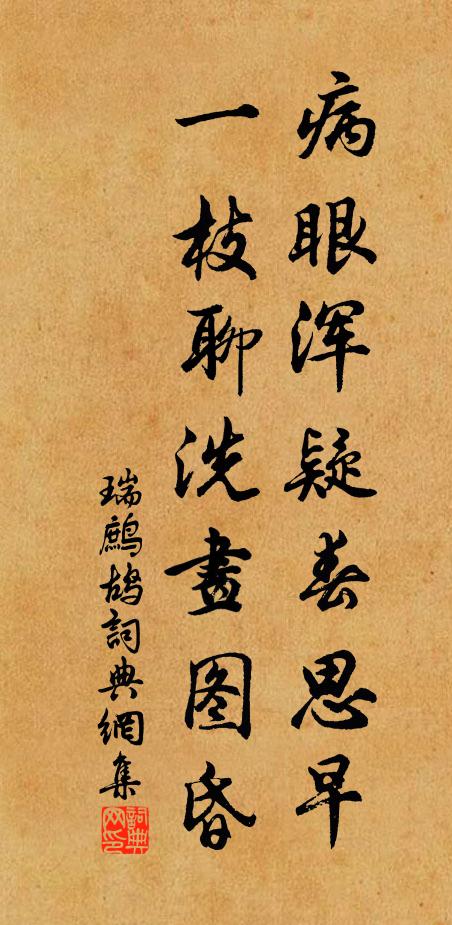 病眼浑疑春思早
一枝聊洗畫图昏
瑞鷓鴣詞典網集
詞典网印